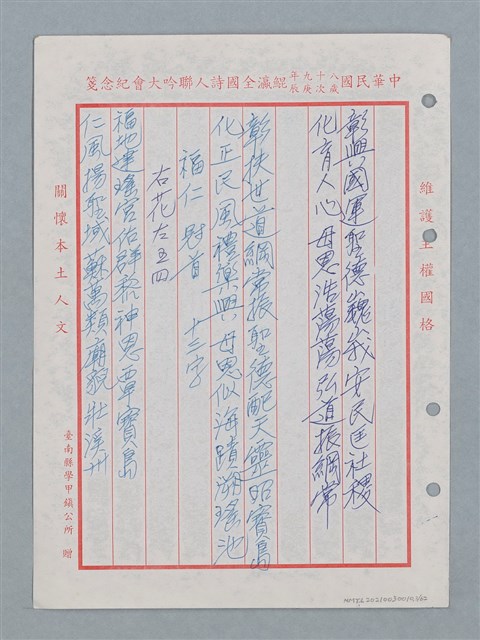 中華民國八十九年歲次庚辰鯤瀛全國詩人聯吟大會紀念箋
維護主權國格
彰興國運聖德巍我安民匡社稷
化育人心母恩浩蕩蕩弘道振綱常
彰扶世道綱常振聖德配天靈昭寶島
化正民風禮樂興母恩似海蹟溯瑤池
福仁 對首 十三字
右花左五四
福地建瑤宮佑群黎神恩覃寶島
仁風揚聖域蘇萬類廟貌壯溪州
關懷本土人文
臺南縣學甲鎮公所 贈